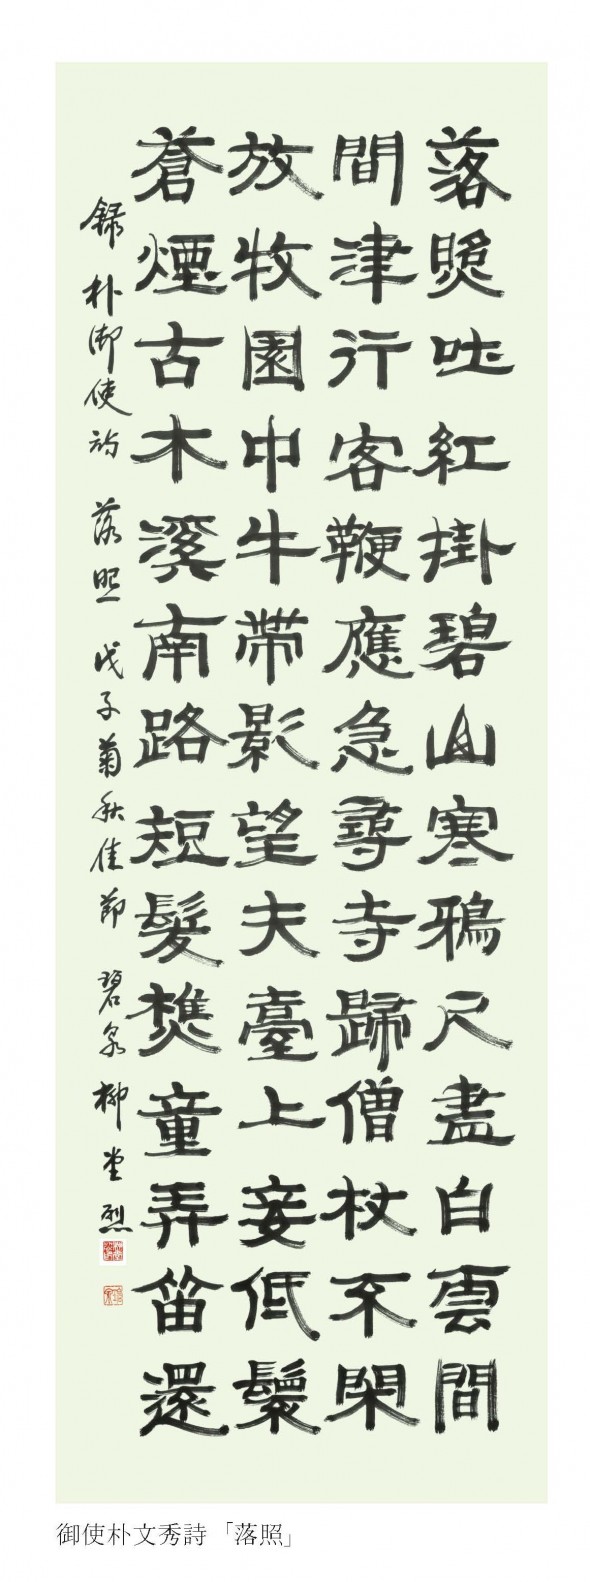 落照吐紅掛碧山寒鴉尺盡白雲間
問津行客鞭應急尋寺歸僧杖不閑
放牧園中牛帶影望夫臺上妾低鬟
蒼煙古木溪南路短髮樵童弄笛還
錄朴御使詩 落照 戊子菊秋佳節 碧泉 柳堂烈
御使朴文秀詩 「落照」